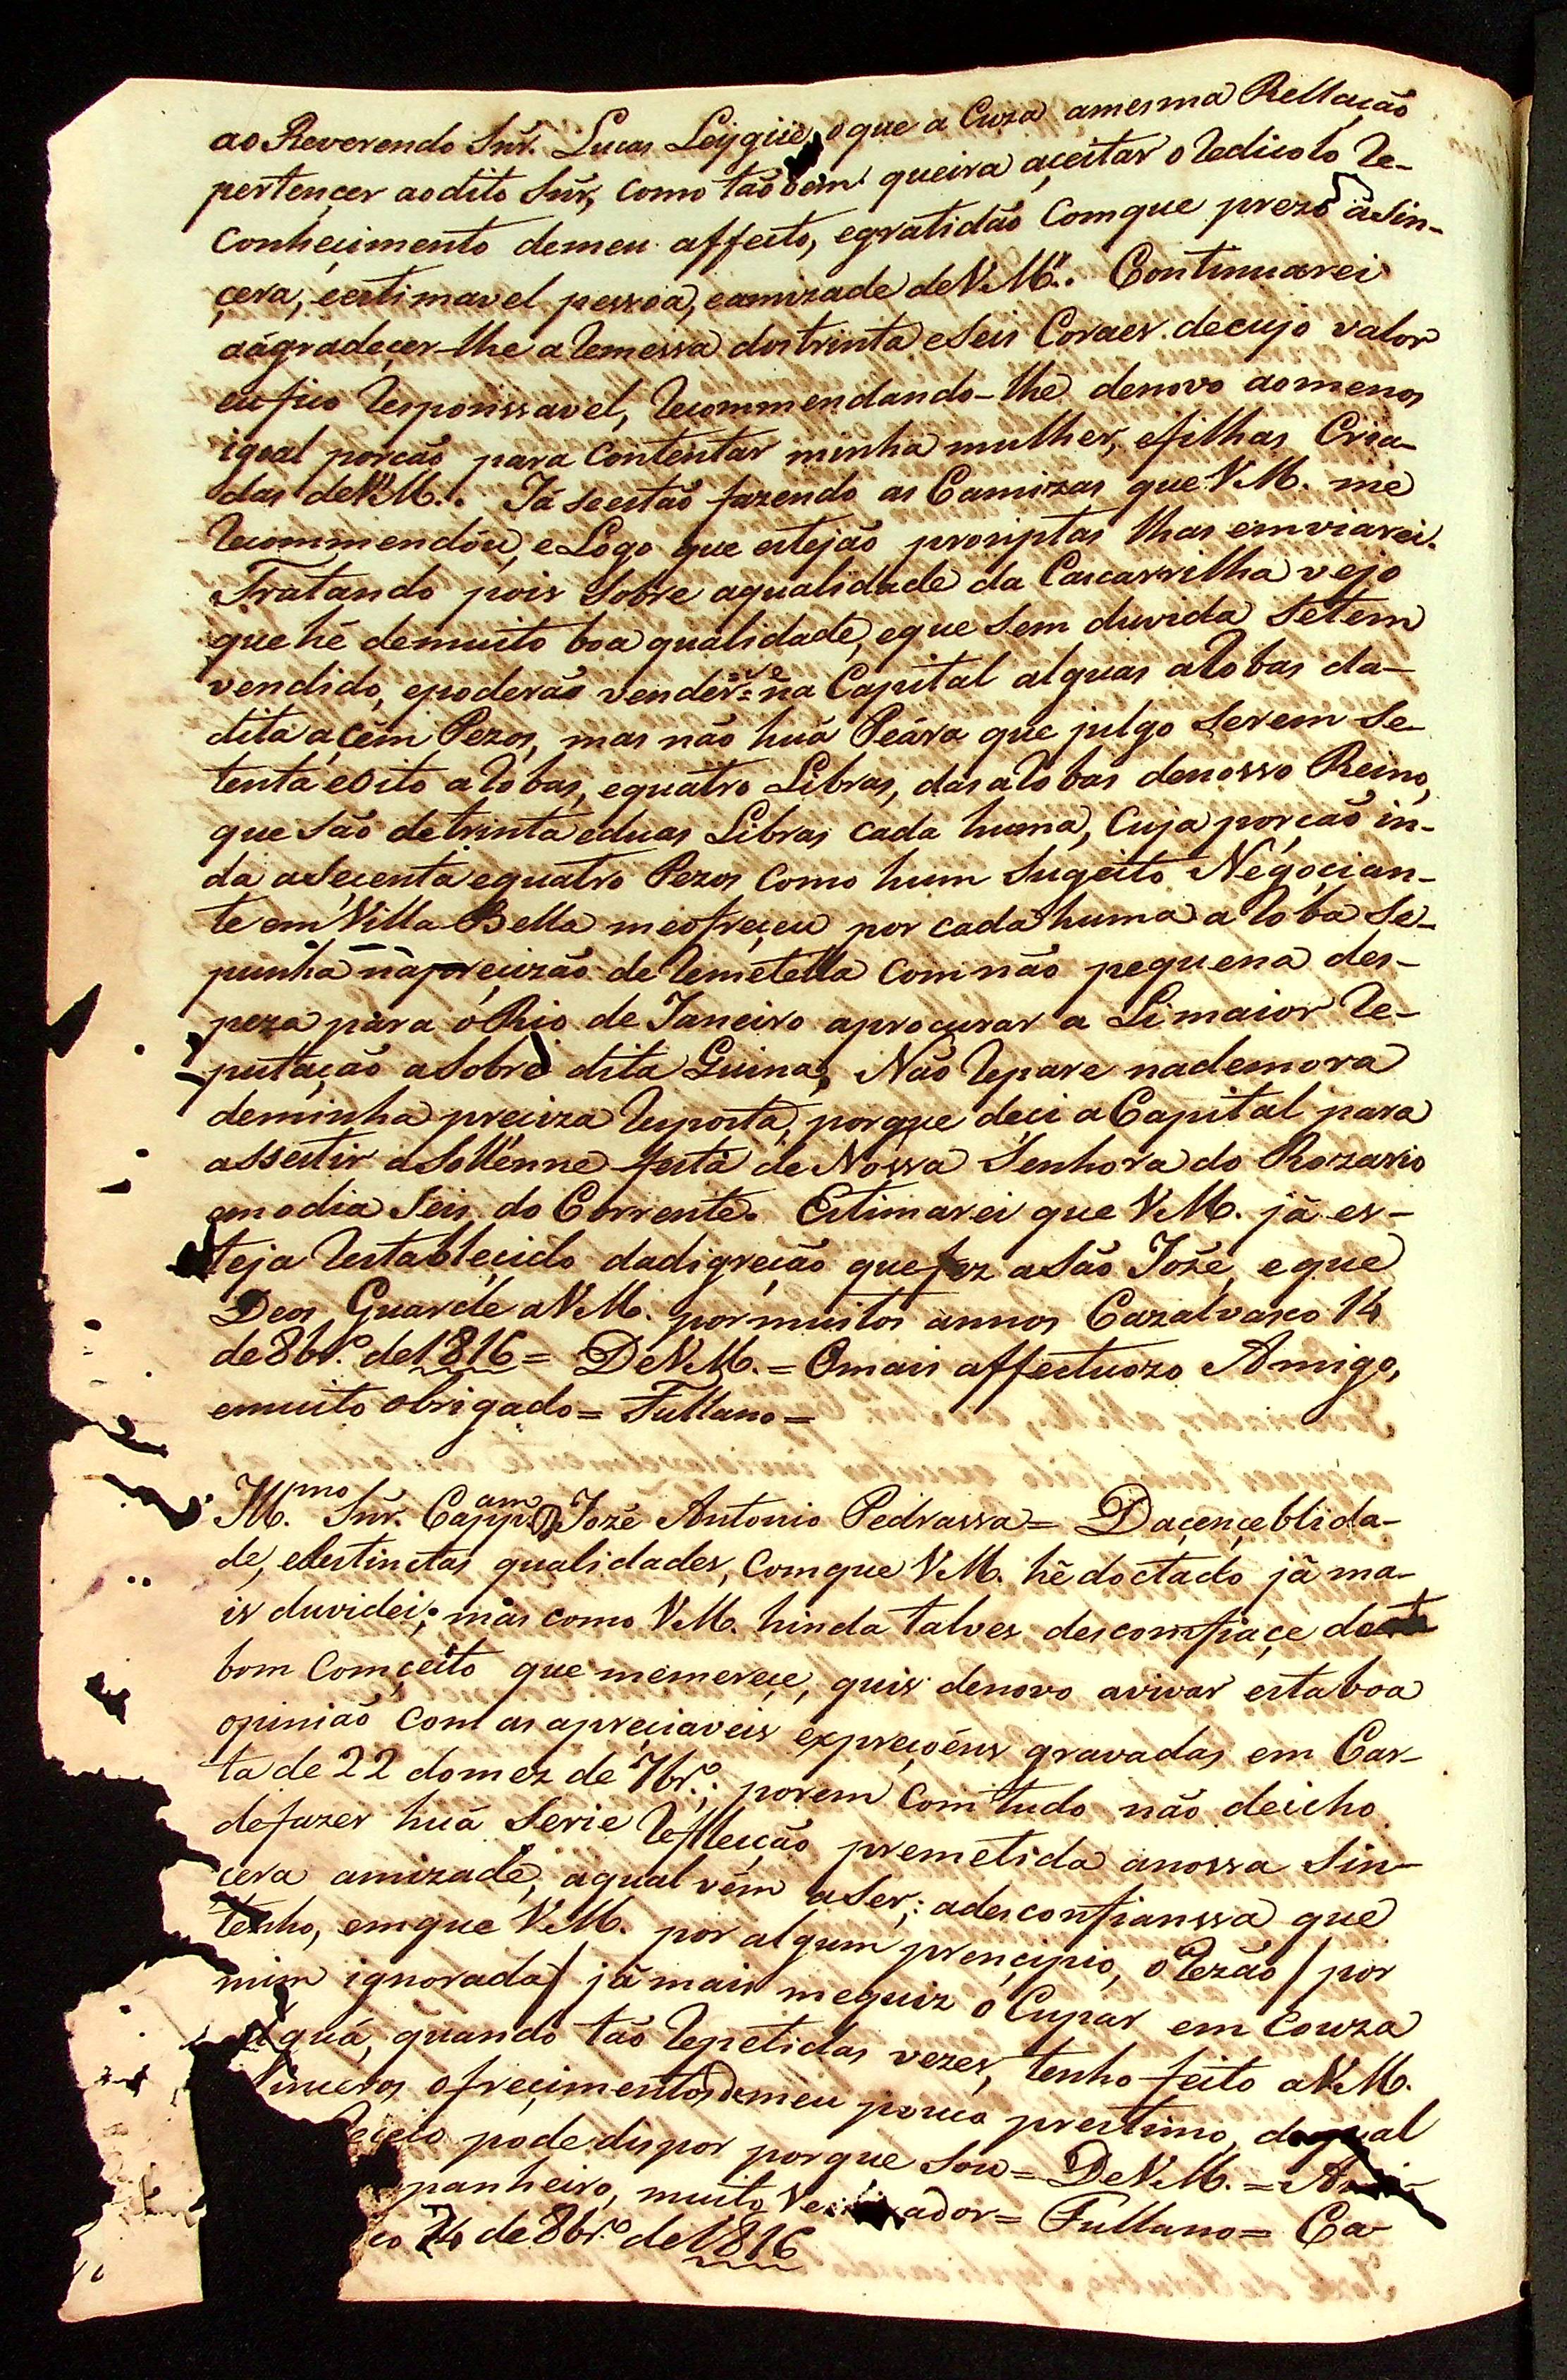 ao Reverendo Snr. Lucas Leygüe, o que a Cuza amesma Rellação
pertençer ao dito Snr, como tãobem queira açeitar o Redicolo Re-
conheçimento demeu affecto, egratidão Comque prezo a Sin-
çera, eestimavel pessoa, eamizade de V.M.ce. Continuarei
aàgradeçer-lhe a Remessa dos trinta e Seis Coraes. decujo valor
eu fico Responssavel, Recommendando-lhe denovo ao menos
igoal porcão para Contentar minha mulher, efilhas Cria-
das deV.M.. Já Se estão fazendo as Camizas que V.M. me
Recommendou, e Logo que estejão promptas lhas emviarei.
Tratando pois Sobre aqualidade da Cascarrilha vejo
que hé demuito boa qualidade, eque Sem duvida Setem
vendido, epoderão vender=se na Capital alguas aRobas da-
dita a çem Pezos, mas não huã Peára que julgo Serem Se-
tenta eoito aRobas, equatro Libras, das aRobas denosso Reino,
que São detrinta eduas Libras cada huma, Cuja porcão in-
da aSecenta equatro Pezos Como hum Sugeito Negoçian-
te em Villa Bella meofreçeu por cada huma aRoba Se-
punha na preçizão de Remetella Com não pequena des-
peza para o Rio de Janeiro aprocurar a Li maior Re-
putação aSobre dita Guina, Não Repare nademora
deminha preciza Resposta, porque deçi a Capital para
assestir aSollenne festa de Nossa Senhora do Rozario
em o dia Seis do Corrente. Estimarei que V.M. já es-
teja Restableçido dadigreção que fez a São Jozé, e que
Deos Guarde a V.M. por muitos annos Cazalvasco 14
de 8br.º de 1816 = De V.M. = Omais affectuozo Amigo,
emuito obrigado = Fullano =

Ill.mo Snr. Capp.am D. Jozé Antonio Pedrassa = Daçençeblida-
de, edestinctas qualidades, Comque V.M. hé doctado já ma-
is duvidei; mas como V.M. hinda talves descomfiaçe do
bom Comçeito que memereçe, quis denovo avivar esta boa
opinião Com as apreçiaveis expreçoéns gravadas em Car-
ta de 22 do mez de 7br.º; porem Com tudo não deicho
defazer huã Serie Reflleicção premetida anossa Sin-
cera amizade, aqual vém aSer; adesconfianssa que
tenho, emque V.M. por algum prençipio, o Rezão / por
mim ignorada / já mais mequiz oCupar em Couza
alguã, quando tão Repetidas vezes, tenho feito a V.M.
Sinceros ofreçimentos demeu pouco prestimo, doqual
pode dispor porque Sou = De V.M. = Ami
panheiro, muito Ve ador = Fullano = Ca
co 24 de 8br.º de 1816